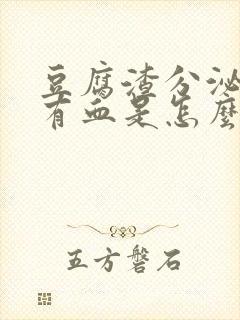 豆腐渣分泌
有血是怎麼
五方磐石